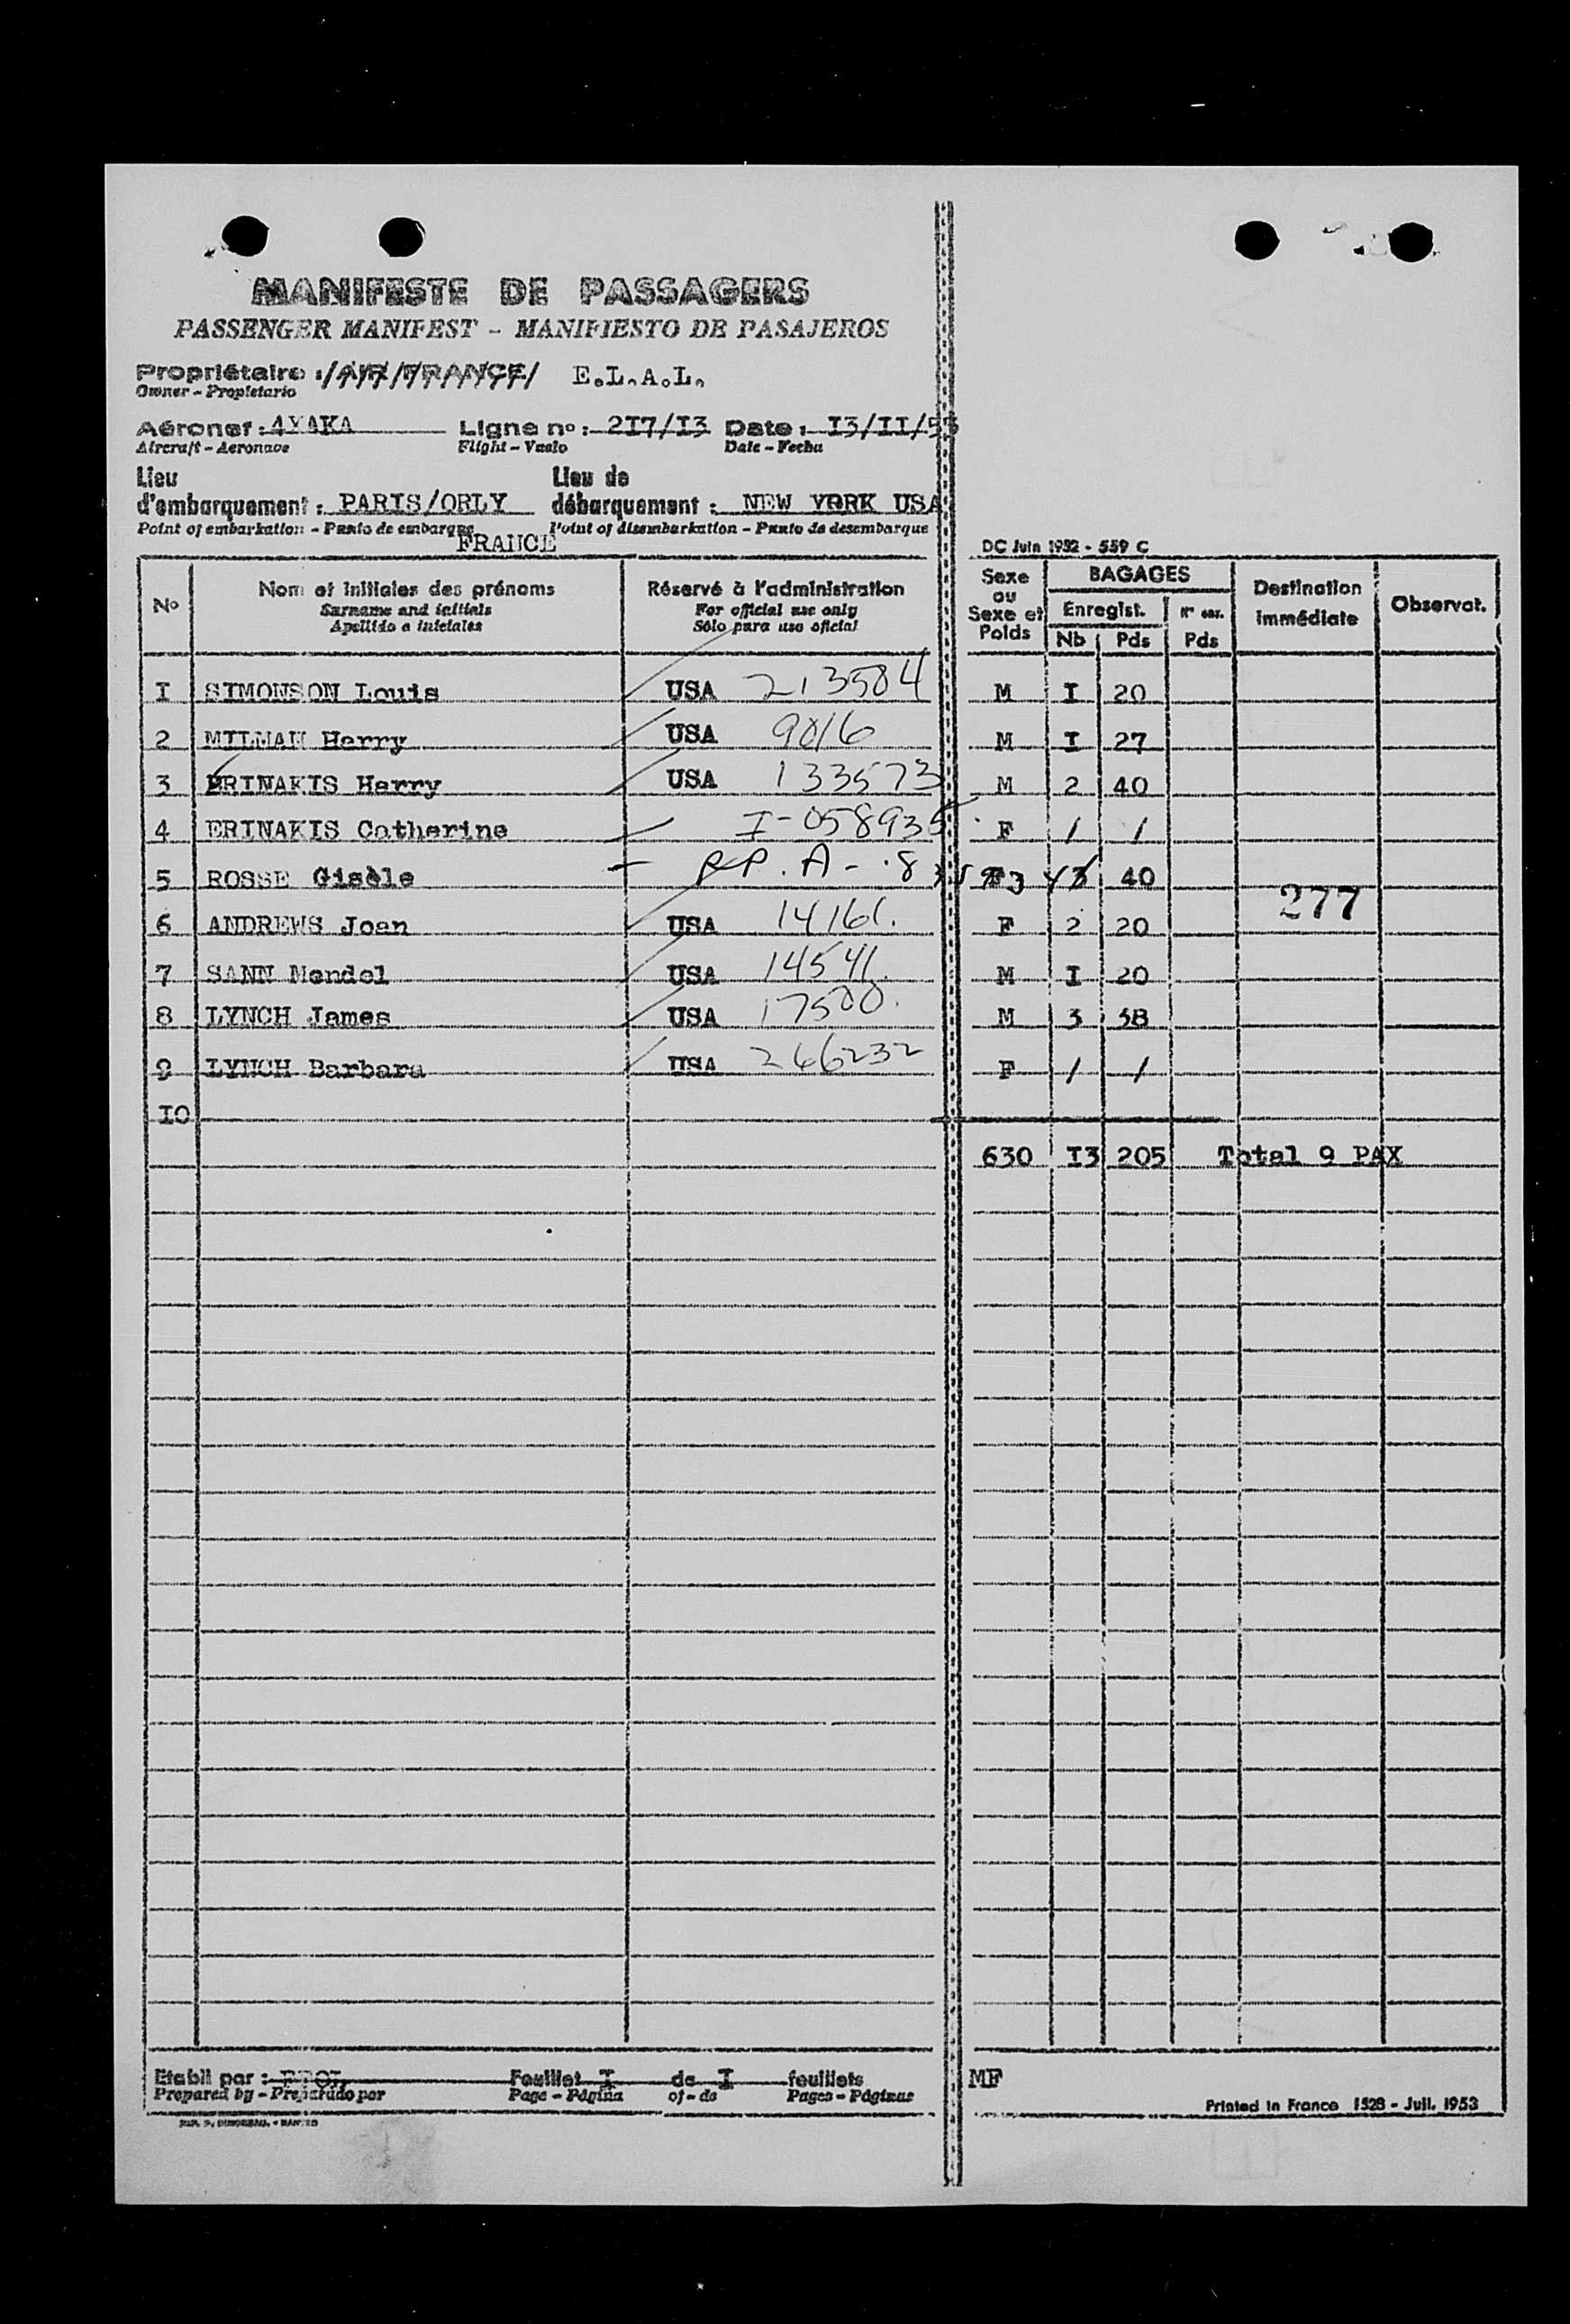 MANIFESTE DE PASSAGERS
PASSENGER MANIFEST - MANIFIESTO DE PASAJEROS
Propriétaire : AIR FRANCE E.L.A.L.
Owner - Propietario
Aéronef : 4XAKA Ligne no : 2I7/I3 Date : I3/II/53
Aircraft - Aeronave Flight - Vuelo Date - Fecha
Lieu Lieu de
d'embarquement : PARIS/ORLY débarquement : NEW YORK USA
Point of embarkation - Punto de embarque Point of disembarkation - Punto de desembarque
FRANCE
DC Juin 1952 - 559 C
No Nom et initiales des prénoms Réservé à l'administration Sexe ou Sexe et Poids BAGAGES Destination immédiate Observat.
Surname and initials For official use only Enregist. N
Apellido e iniciales Sólo para uso oficial Nb Pds Pds
I SIMONSON Louis USA 213584 M I 20
2 MILMAN Harry USA 9016 M I 27
3 ERINAKIS Harry USA 133573 M 2 40
4 ERINAKIS Catherine I-058935 F / /
5 ROSSE Gisèle A - 3 40
277
6 ANDREWS Joan USA 14161. F 2 20
7 SANN Mendel USA 14541. M I 20
8 LYNCH James USA 17500. M 3 38
9 LYNCH Barbara USA 266232 F / /
IO
630 I3 205 Total 9 PAX
Etabli par : Feuillet I de I feuillets MF
Prepared by - Preparado por Page - Página of - de Pages - Páginas
Printed in France 1528 - Juil. 1953